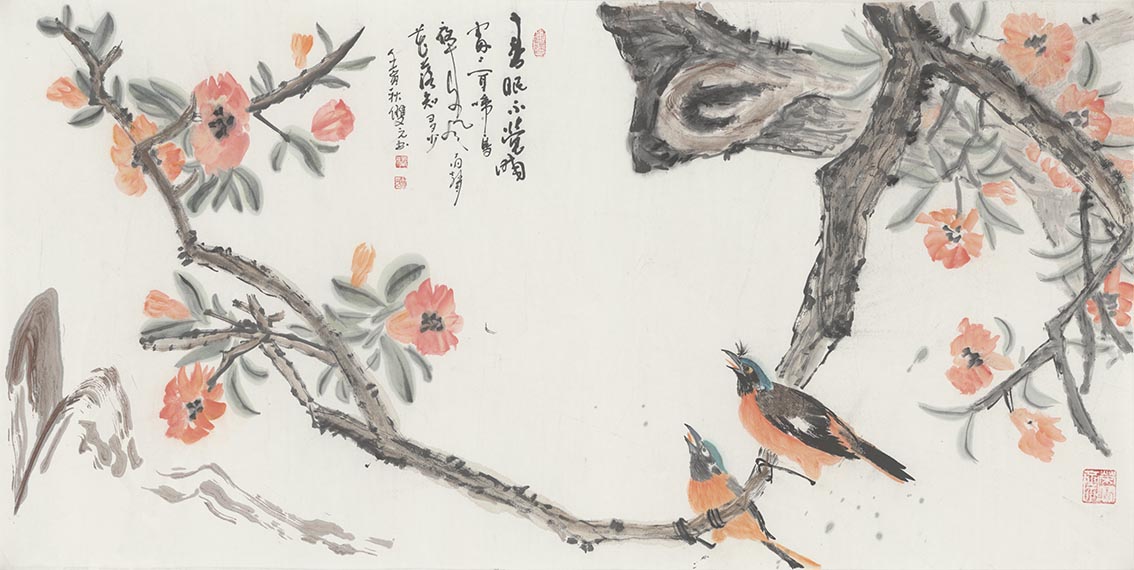 春眠不覺曉
處々聞啼鳥
夜來風雨聲
花落知多少
壬寅秋雙元书